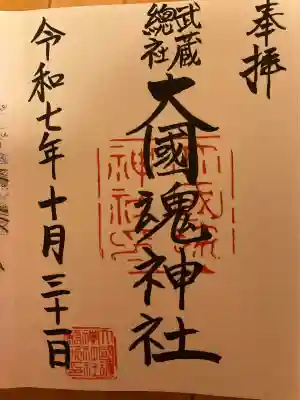 奉拝
武蔵
總社
大國魂神社
令和七年十月三十一日